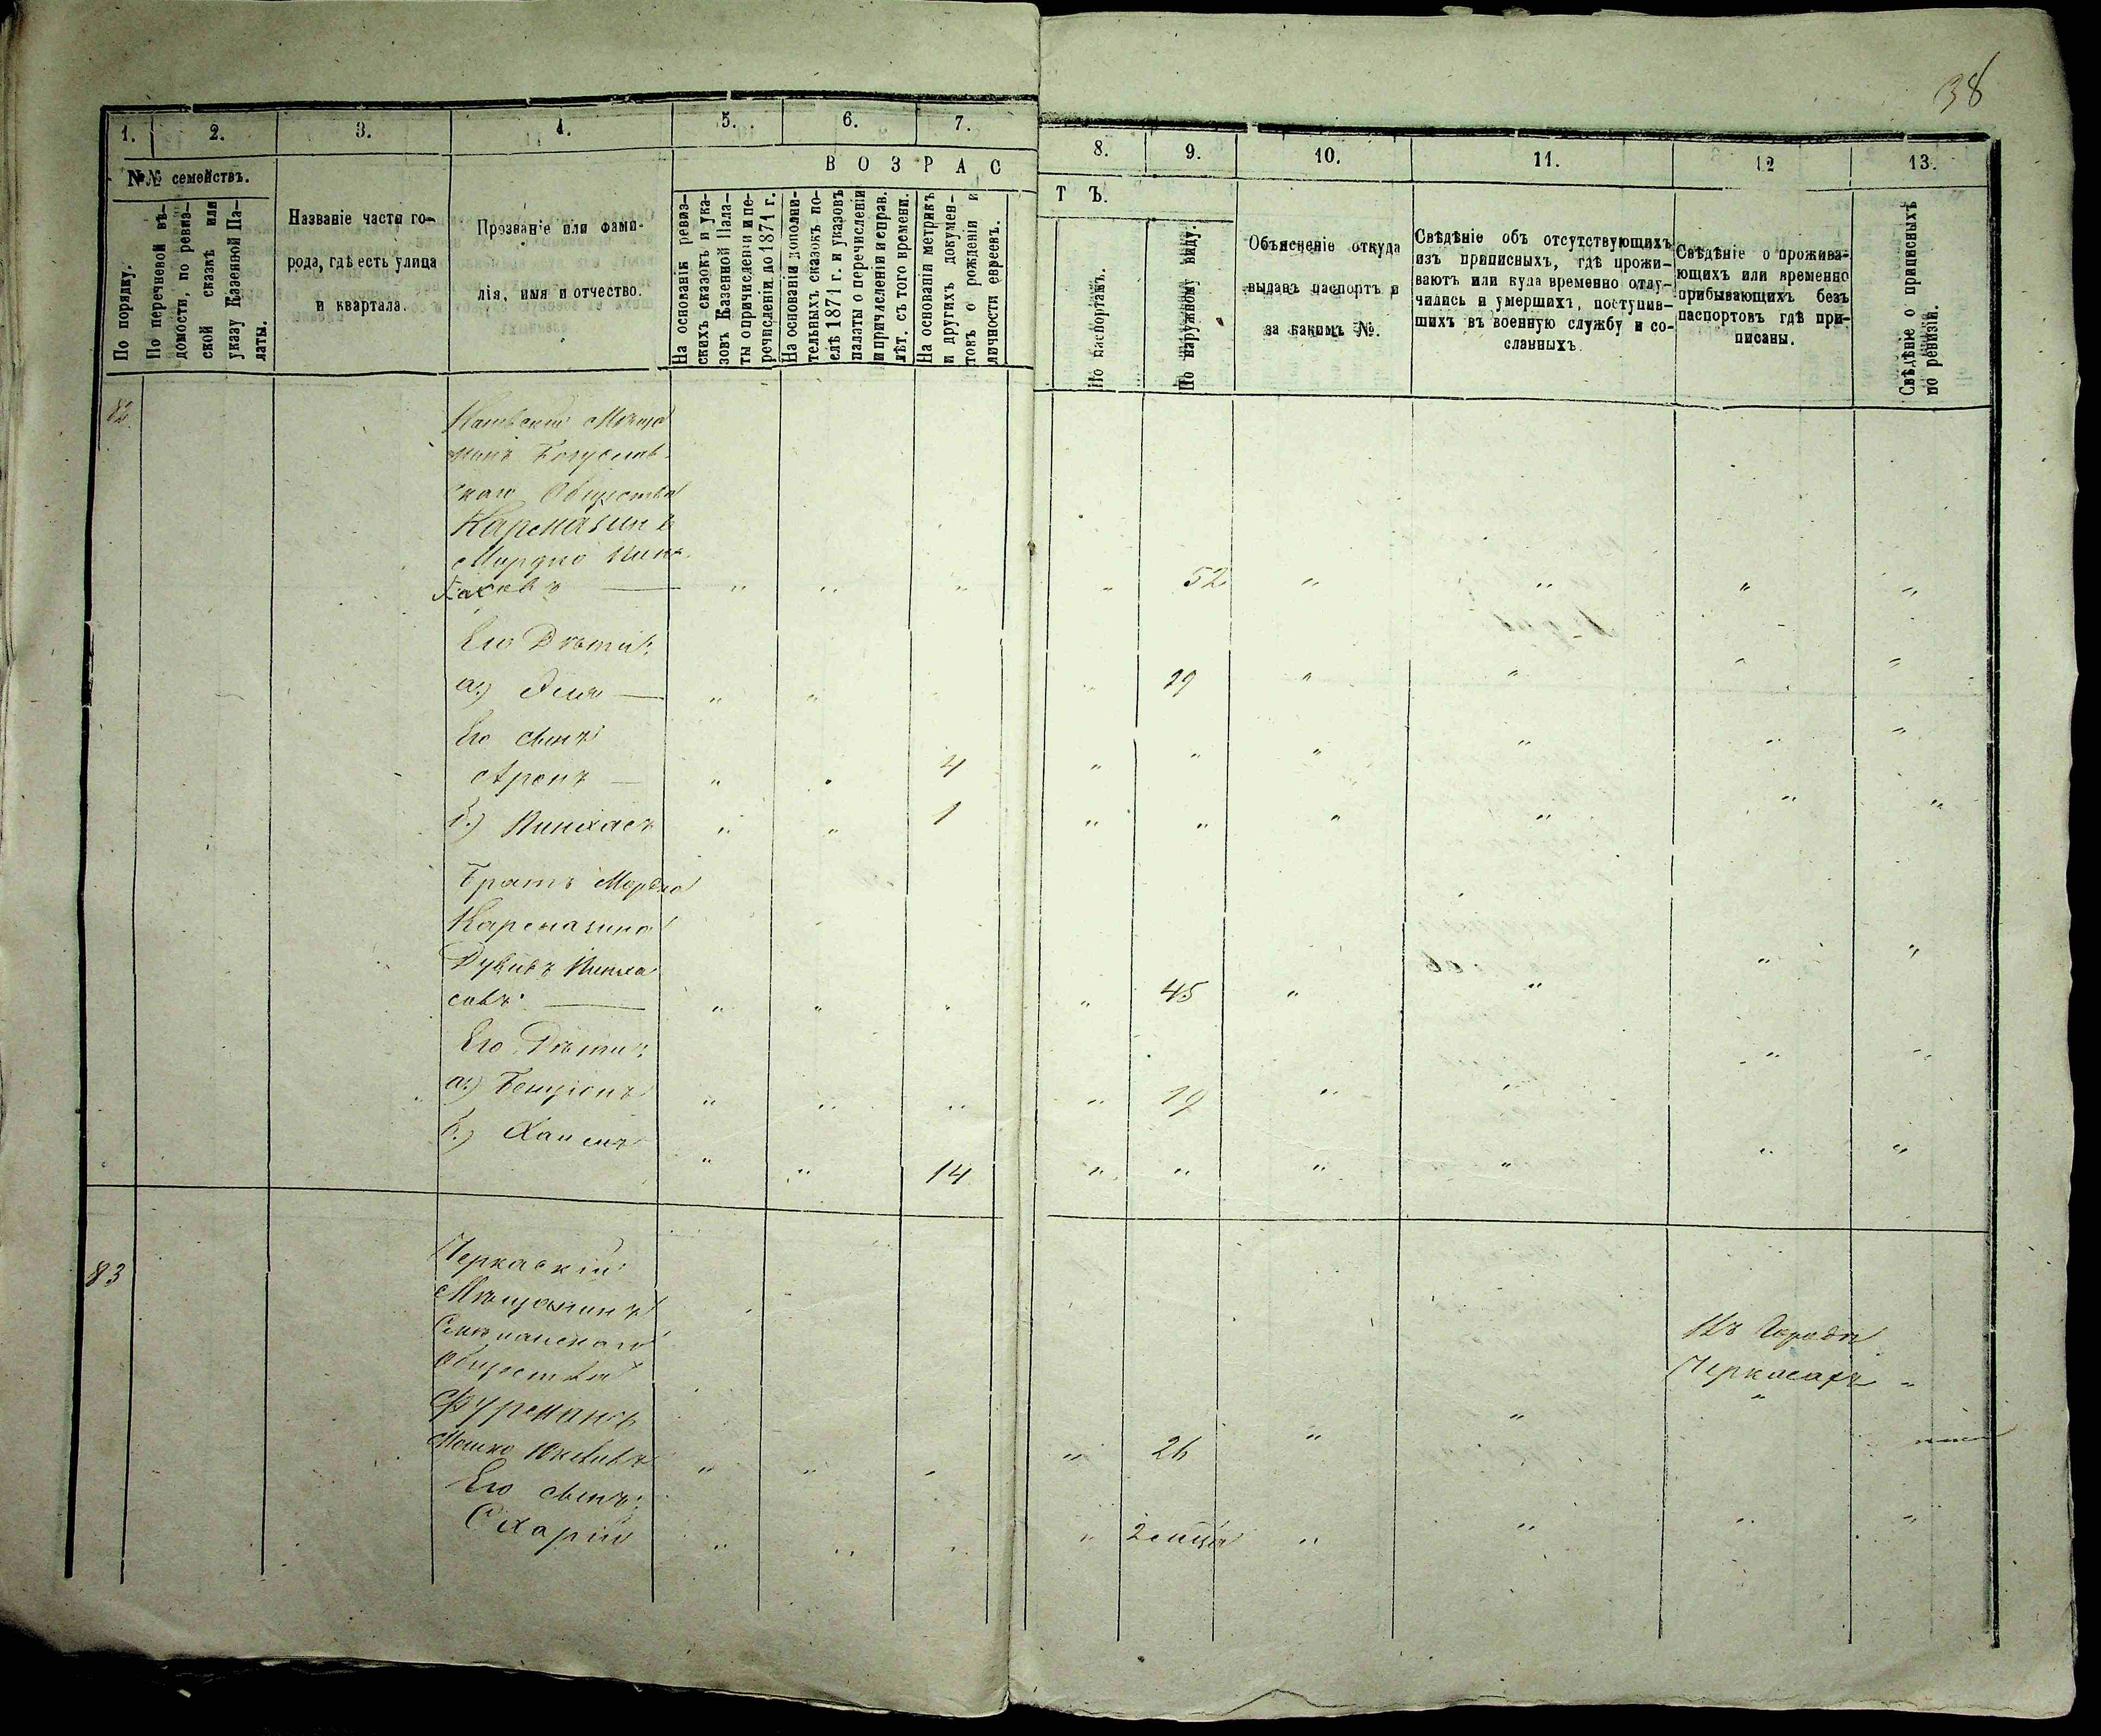 38
1. 2. 3. 4. 5. 6. 7. 8. 9. 10. 11. 12 13.
№№ семействъ.
По порядку.
По перечневой вѣ-
домости, по ревиз-
ской сказкѣ или
указу Казенной Па-
латы.
Названіе части го-
рода, гдѣ есть улица
и квартала.
Прозваніе или фами-
лія, имя и отчество.
ВОЗРАС
ТЪ.
На основаніи ревиз-
скихъ сказокъ и ука-
зовъ Казенной Пала-
ты о причисленіи и пе-
речисленіи до 1871 г.
На основаніи дополни-
тельныхъ сказокъ по-
слѣ 1871 г. и указовъ
палаты о перечисленіи
и причисленіи и справ.
лѣт. съ того времени.
На основаніи метрикъ
и другихъ докумен-
товъ о рожденіи и
личности евреевъ.
По паспортамъ.
По наружному виду.
Объясненіе откуда
выданъ паспортъ и
за какимъ №.
Свѣдѣніе объ отсутствующихъ
изъ приписныхъ, гдѣ прожи-
ваютъ или куда временно отлу-
чились и умершихъ, поступив-
шихъ въ военную службу и со-
сланныхъ.
Свѣдѣніе о прожива-
ющихъ или временно
прибывающихъ безъ
паспортовъ гдѣ при-
писаны.
Свѣдѣніе о приписныхъ
по ревизіи.
82
Каневскій Мѣща
нинъ Богуслав-
скаго Общества
Кармазинъ
Мордко Пин-
хасовъ — " " " " 52 " " " "
Его Дѣти:
а.) Эля — " " " " 29 " " " "
Его сынъ
Аронъ — " " 4 " " " " " "
б.) Пинхасъ " " 1 " " " " " "
Братъ Мордка
Кармазина
Дувидъ Пинха
совъ — " " " " 45 " " " "
Его Дѣти:
а.) Бенціонъ " " " " 19 " " " "
б.) Хаимъ " " 14 " " " " " "
83
Черкаскій
Мѣщанинъ
Смѣлянскаго
Общества
Фурманъ
Мошко " " " " 26 " " "
Въ Городѣ
Черкасахъ "
Его сынъ:
Схарій " " " " 2 " " " "